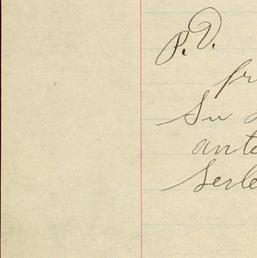 P.D.
fr
Su
ante
serle